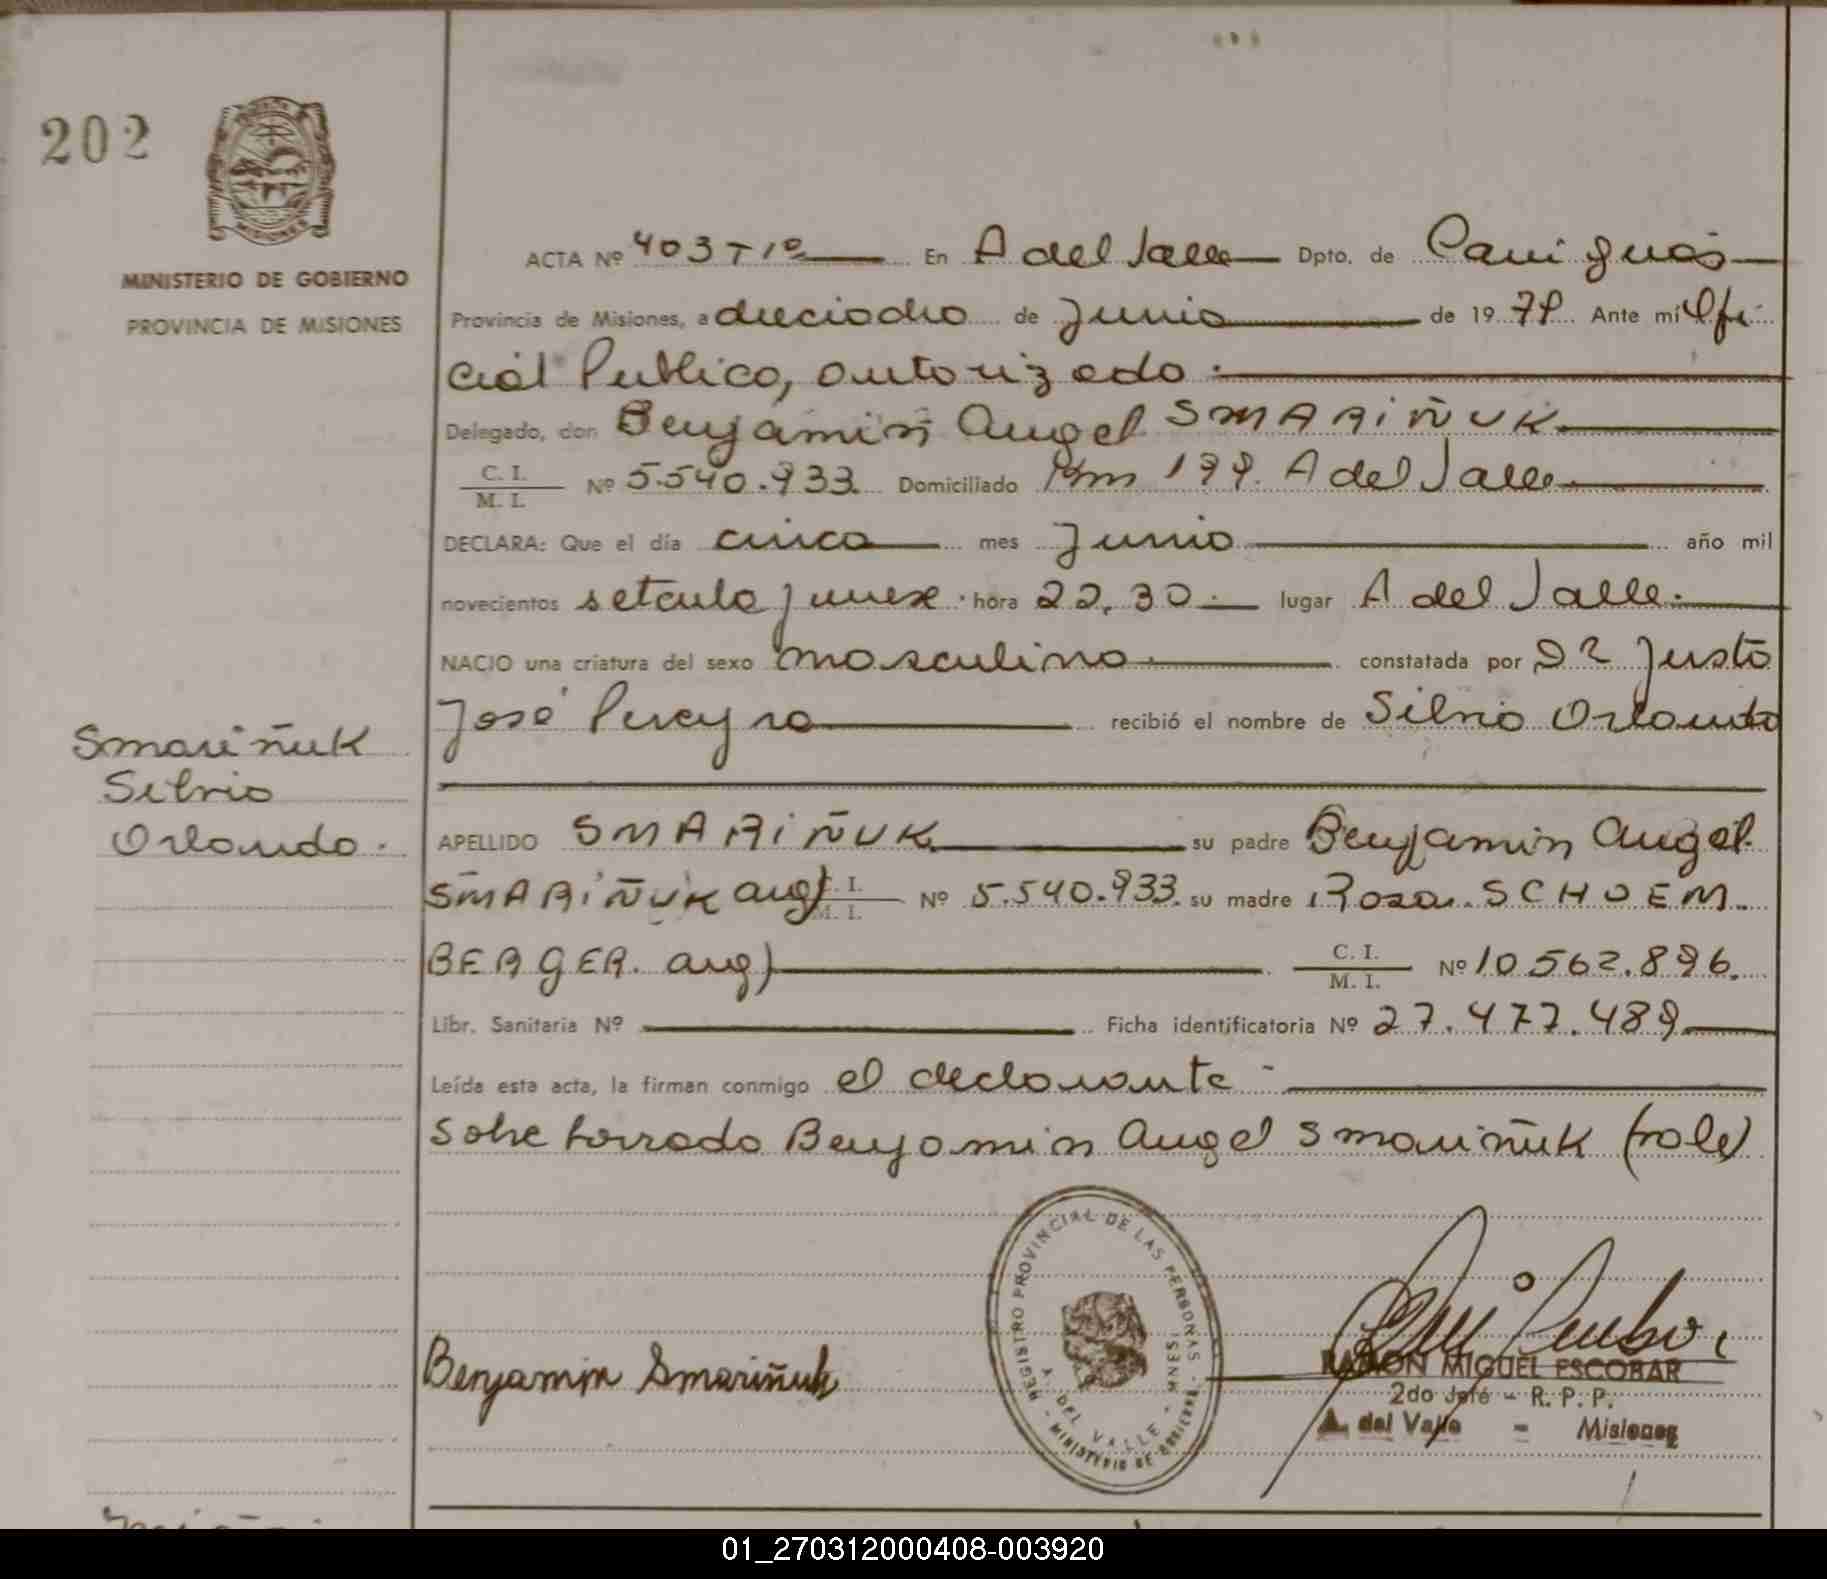 202
MINISTERIO DE GOBIERNO
PROVINCIA DE MISIONES
MISIONES
ACTA Nº 403 T 1º En A del Valle Dpto. de Cainguás
Provincia de Misiones, a dieciocho de Junio de 1979. Ante mí Ofi-
cial Publico, autorizado.
Delegado, don Benjamin Angel SMARIÑUK
C. I.
M. I. Nº 5.540.933. Domiciliado Km 199. A del Valle
DECLARA: Que el día cinco mes Junio año mil
novecientos setenta y nueve. hora 22,30. lugar A del Valle.
NACIO una criatura del sexo masculino. constatada por Dr Justo
José Pereyra recibió el nombre de Silvio Orlando
Smariñuk
Silvio
Orlando.
APELLIDO SMARIÑUK su padre Benjamin Angel
SMARIÑUK arg) C. I. M. I. Nº 5.540.933. su madre Rosa. SCHOEM-
BERGER. arg) C. I. M. I. Nº 10.562.896.
Libr. Sanitaria Nº Ficha identificatoria Nº 27.477.489
Leída esta acta, la firman conmigo el declarante
Sobre borrado Benjamin Angel Smariñuk (vale)
REGISTRO PROVINCIAL DE LAS PERSONAS - MINISTERIO DE GOBIERNO -
A. DEL VALLE - MNES
Benjamin Smariñuk
RAMON MIGUEL ESCOBAR
2do Jefe - R. P. P.
A. del Valle - Misiones
01_270312000408-003920